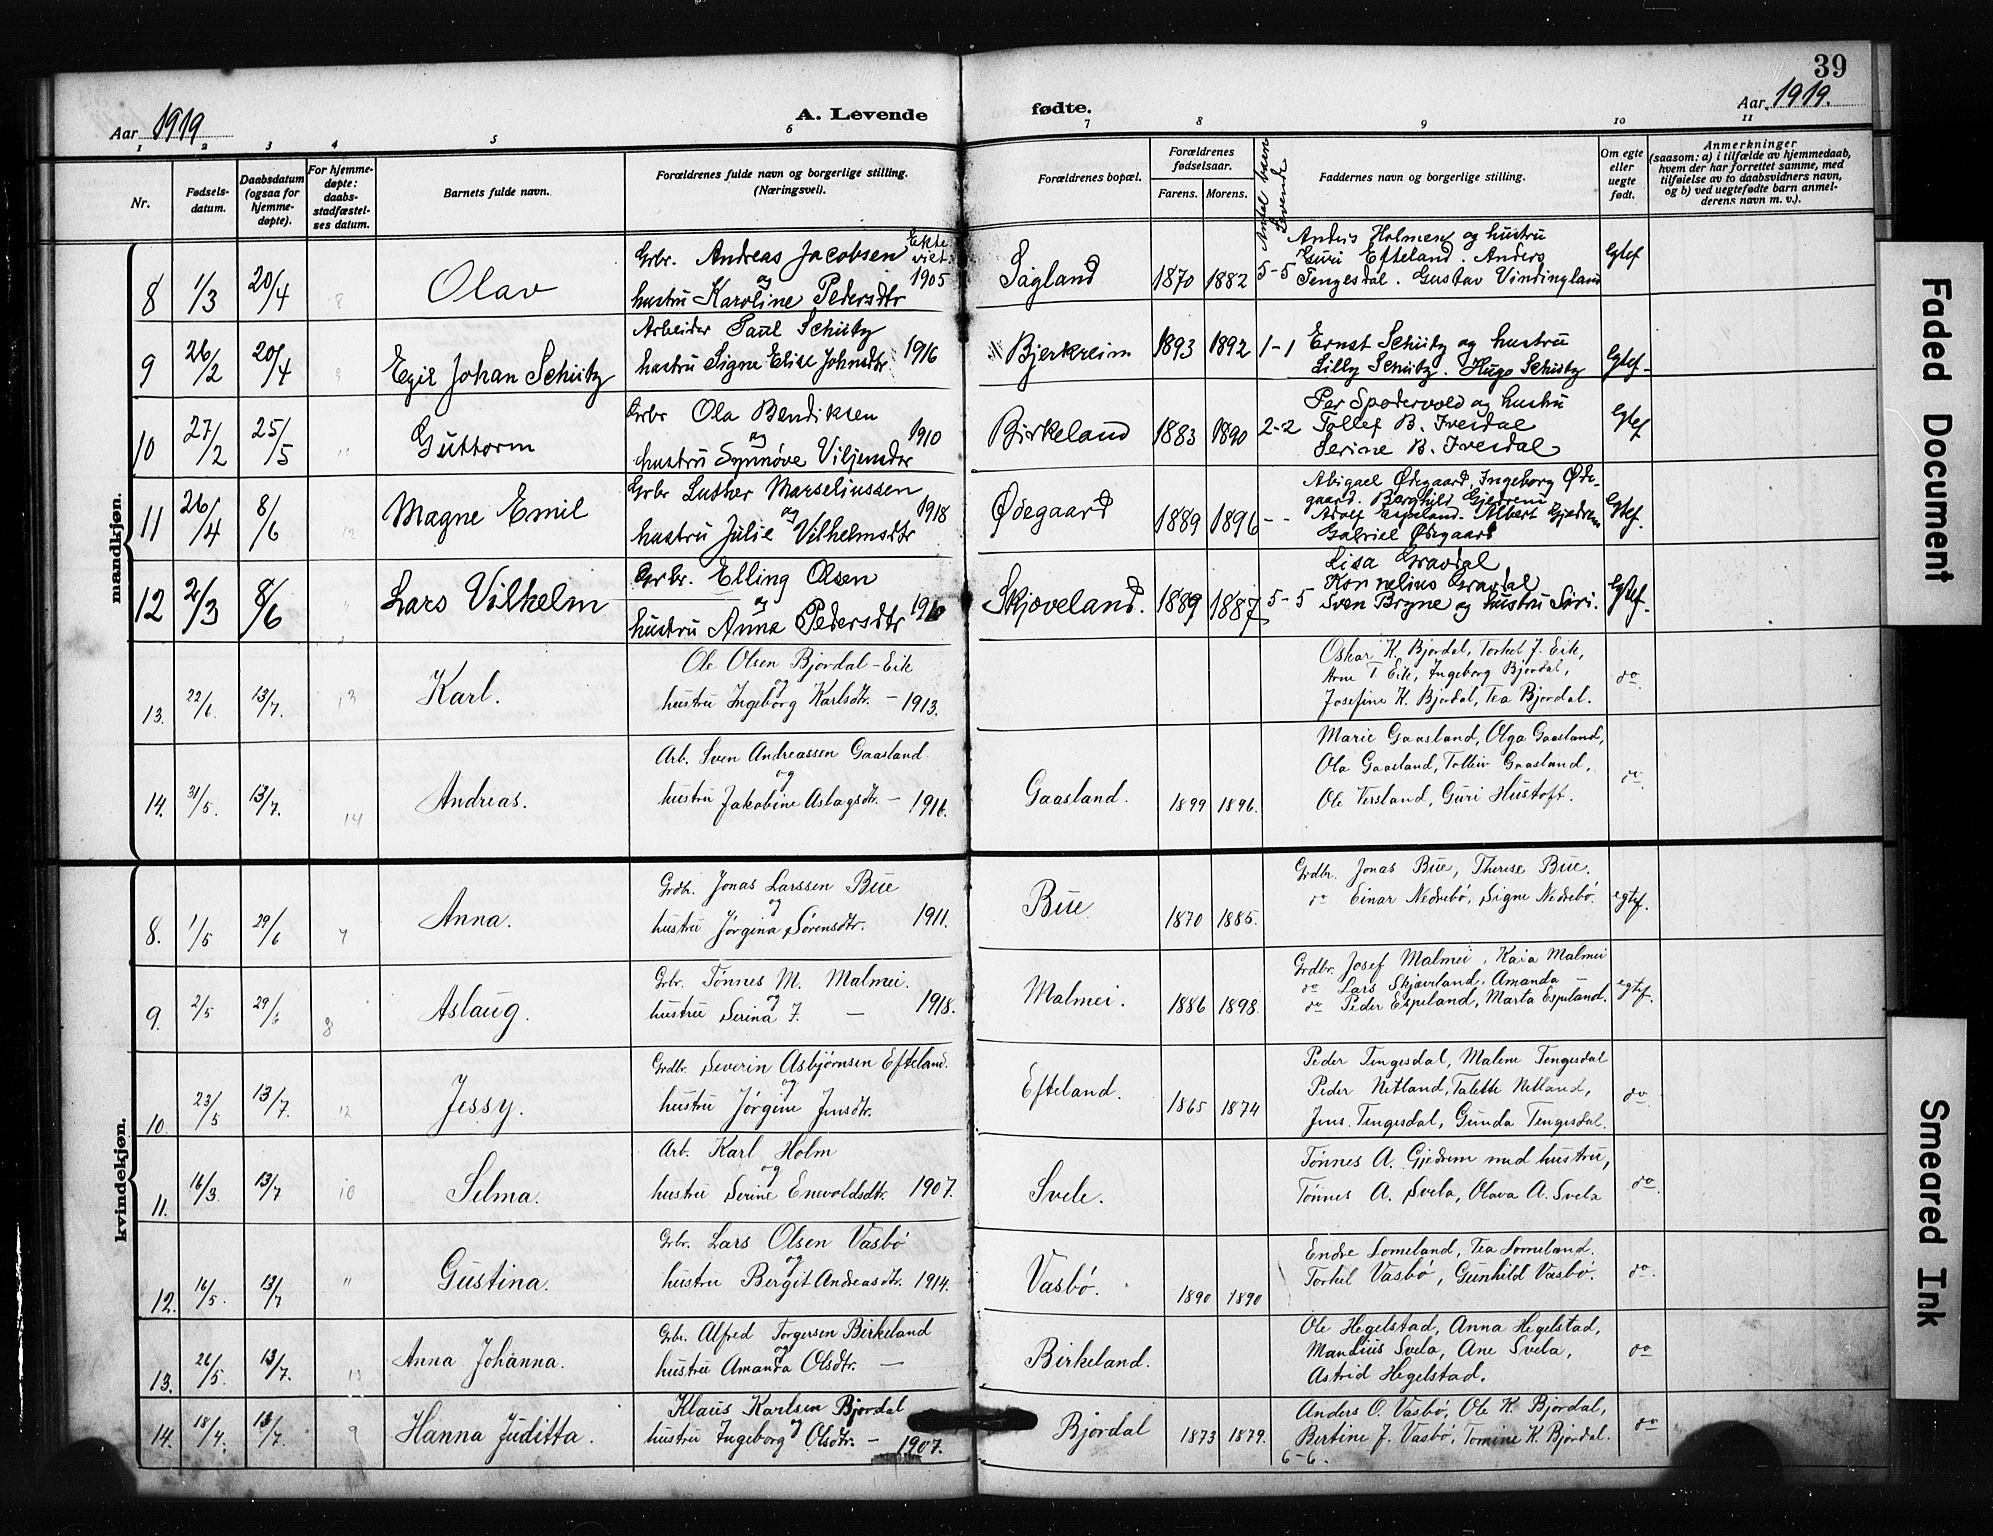 39
Aar 1919
A. Levende
fødte.
Aar 1919.
1 2 3 4 5 6 7 8 9 10 11
Nr.
Fødsels-
datum.
Daabsdatum
(ogsaa for
hjemme-
døpte).
For hjemme-
døpte:
daabs-
stadfæstel-
ses datum.
Barnets fulde navn.
Forældrenes fulde navn og borgerlige stilling.
(Næringsvei).
Forældrenes bopæl.
Forældrenes
fødselsaar.
Farens. Morens.
Antal barn
Levende
Faddernes navn og borgerlige stilling.
Om egte
eller
uegte
født.
Anmerkninger
(saasom: a) i tilfælde av hjemmedaab,
hvem der har forrettet samme, med
tilføielse av to daabsvidners navn,
og b) ved uegtefødte barn anmel-
derens navn m. v.).
mandkjøn.
8 1/3 20/4 8 Olav
Grbr. Andreas Jacobsen Ekte viet. 1905
og
hustru Karoline Pedersdtr
Sagland 1870 1882 5-5
Anders Holmen og hustru
Guri Efteland. Anders
Tengesdal. Gustav Vindingland
Egtef
9 26/2 20/4 9 Egil Johan Schütz
Arbeider Paul Schütz
hustru Signe Elise Johnsdtr 1916
Bjerkreim 1893 1892 1-1
Ernst Schütz og hustru
Lilly Schütz. Hugo Schütz
Egtef-
10 27/2 25/5 Guttorm
Grbr Ola Bendiksen
og 1910
hustru Synnøve Viljemsdtr
Birkeland 1883 1890 2-2
Per Spødervold og hustru
Tollef B. Ivesdal
Serine B. Ivesdal
Egtef
11 26/4 8/6 12 Magne Emil
Grbr Luther Marseliussen
og 1918
hustru Julie Vilhelmsdtr
Ødegaard 1889 1896 --
Abigael Ødegaard, Ingeborg Øde-
gaard. Borghild Gjedrem
Adolf Espeland. Albert Gjedrem
Gabriel Ødegaard
Egtef.
12 2/3 8/6 " Lars Vilhelm
Grbr. Elling Olsen
og 1910
hustru Anna Pedersdtr
Skjæveland. 1889 1887 5-5
Lisa Gravdal
Kornelius Gravdal
Sven Bryne og hustru Siri.
Egtef.
13. 22/6. 13/7. 13 Karl.
Ole Olsen Bjordal-Eik
og
hustru Ingeborg Karlsdtr. - 1913.
Oskar K. Bjordal, Torkel J. Eik,
Arne T. Eik, Ingeborg Bjordal,
Josefine K. Bjordal, Tea Bjordal.
do.
14. 31/5. 13/7. 14 Andreas.
Arb. Sven Andreassen Gaasland
og
hustru Jakobine Aslagsdtr. - 1918.
Gaasland. 1899 1896.
Marie Gaasland, Olga Gaasland,
Ola Gaasland, Tolleiv Gaasland,
Ole Versland, Guri Hustoft.
do.
kvindekjøn.
8. 1/5 29/6 7 Anna.
Grdbr. Jonas Larssen Bue
og
hustru Jørgina Sørensdtr. 1911.
Bue 1870 1885.
Grdbr. Jonas Bue, Therese Bue.
do Einar Nedrebø, Signe Nedrebø.
egtef.
9. 2/5 29/6 8 Aslaug.
Grbr. Tønnes M. Malmei.
og
hustru Serina J. - 1918.
Malmei. 1886 1898.
Grdbr. Josef Malmei, Kaia Malmei
do Lars Skjæveland, Amanda -
do Peder Espeland, Marta Espeland.
egtef.
10. 23/5 13/7. 12 Jessy.
Grdbr. Severin Asbjørnsen Efteland.
og
hustru Jørgine Jensdtr.
Efteland. 1865 1874
Peder Tengesdal, Malene Tengesdal
Peder Netland, Talette Netland,
Jens. Tengesdal, Gunda Tengesdal.
do
11. 16/3. 13/7 10 Selma.
Arb. Karl Holm
og
hustru Serine Enevoldsdtr. 1907.
Svele.
Tønnes A. Gjedrem med hustru,
Tønnes A. Svela, Olava A. Svela
do.
12. 16/5. 13/7 " Gustina.
Grbr. Lars Olsen Vasbø
og
hustru Bergit Andreasdtr. 1914.
Vasbø. 1890 1890
Endre Lomeland, Tea Lomeland.
Torkel Vasbø, Gunhild Vasbø.
do.
13. 26/5. 13/7. 13 Anna Johanna.
Grbr. Alfred Torgersen Birkeland
og
hustru Amanda Olsdtr. -
Birkeland.
Ole Hegelstad, Anna Hegelstad,
Mandius Svela, Ane Svela,
Astrid Hegelstad.
do
14. 18/4. 13/7. 9 Hanna Juditta.
Klaus Karlsen Bjordal
og
hustru Ingeborg Olsdtr. - 1907.
Bjordal 1873 1879.
Anders O. Vasbø, Ole K. Bjordal,
Bertine J. Vasbø, Tomine K. Bjordal.
6-6.
do
Faded Document
Smeared Ink